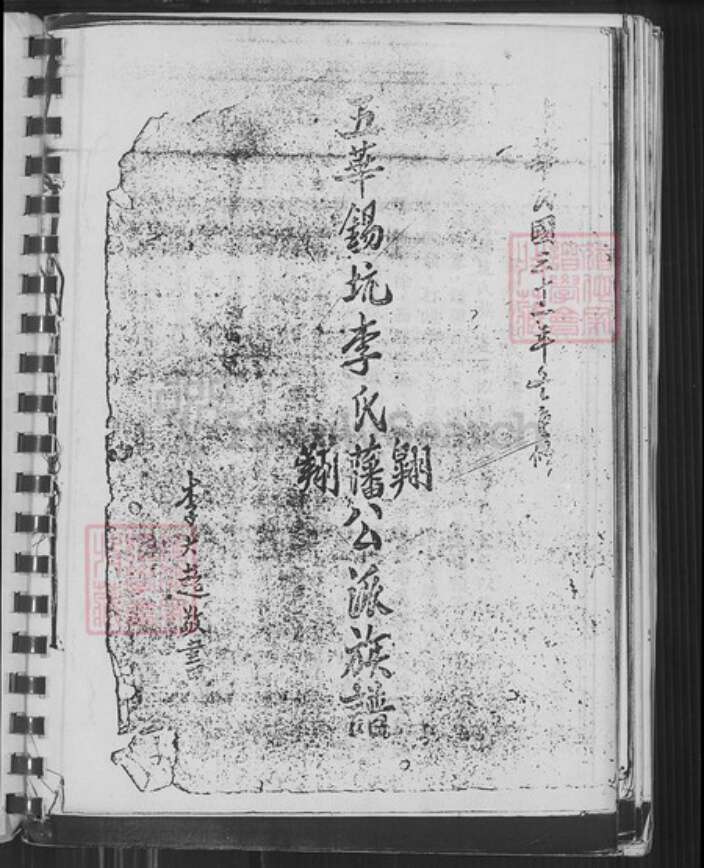 華民國三十二年冬重修
五華錫坑李氏藩公派族譜
翱
翔
李大超敬書
FamilySearch